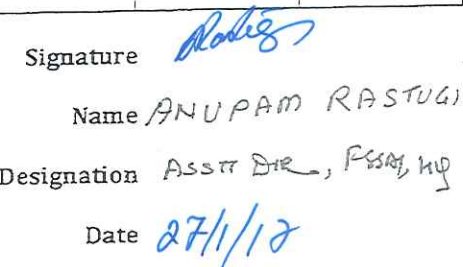 Signature
Name ANUPAM RASTUGI
Designation ASSTT DIR, FSSAI, HQ
Date 27/1/17